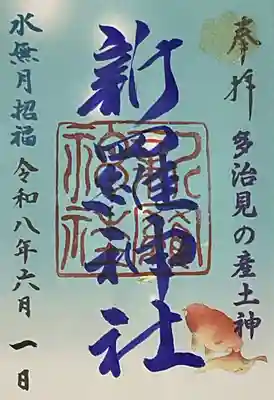 奉拝
多治見の産土神
新羅神社
水無月招福
令和八年六月一日